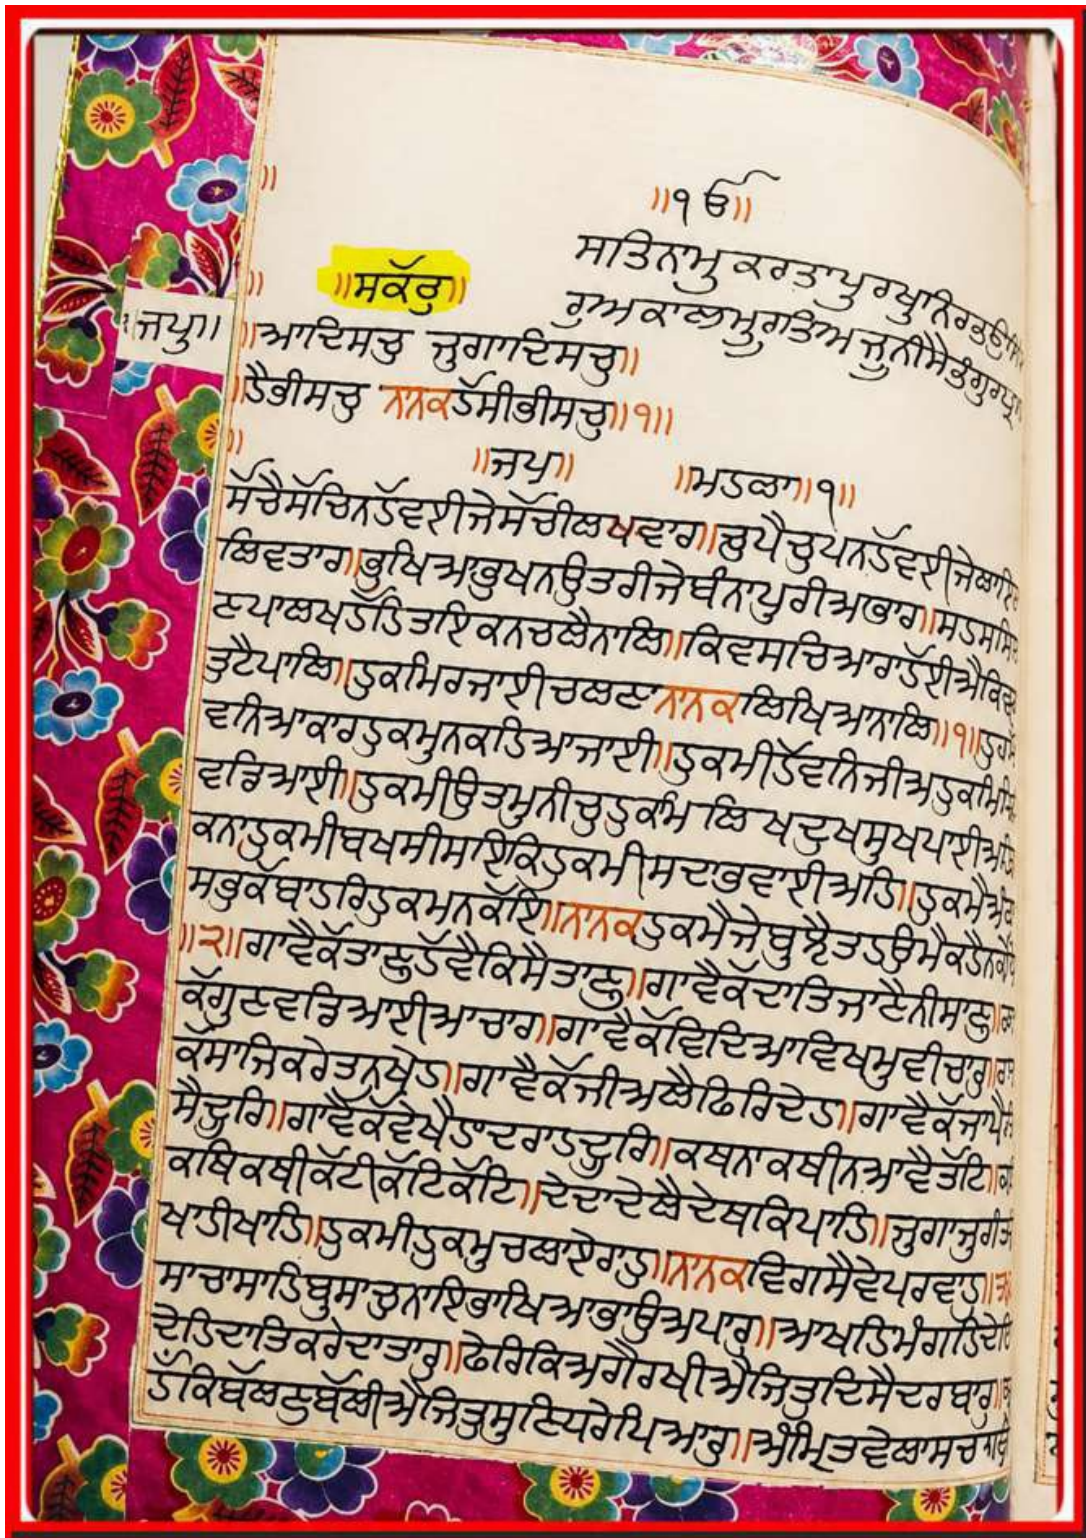 ॥੧ਓ॥
ਸਤਿਨਾਮੁ ਕਰਤਾਪੁਰਖੁਨਿਰਭਉ
ਰੁਅਕਾਲਮੂਰਤਿਅਜੂਨੀਸੈਭੰਗੁਰਪ੍ਰ
ਜਪੁ॥
॥ਆਦਿਸਚੁ ਜੁਗਾਦਿਸਚੁ॥
ਹੈਭੀਸਚੁ ਨਾਨਕਹੋਸੀਭੀਸਚੁ॥੧॥
॥ਜਪੁ॥ ॥ਮਹਲਾ॥੧॥
ਸੋਚੈਸੋਚਿਨਹੋਵਈਜੇਸੋਚੀਲਖਵਾਰ॥ਚੁਪੈਚੁਪਨਹੋਵਈਜੇਲਾਇ
ਲਿਵਤਾਰ॥ਭੁਖਿਆਭੁਖਨਉਤਰੀਜੇਬੰਨਾਪੁਰੀਅਭਾਰ॥ਸਹਸਸਿ
ਣਪਾਲਖਹੋਹਿਤਇਕਨਚਲੈਨਾਲਿ॥ਕਿਵਸਚਿਆਰਾਹੋਈਐਕਿਵ
ਤੁਟੈਪਾਲਿ॥ਹੁਕਮਿਰਜਾਈਚਲਣਾਨਾਨਕਲਿਖਿਆਨਾਲਿ॥੧॥
ਵਨਿਆਕਾਰਹੁਕਮੁਨਕਹਿਆਜਾਈ॥ਹੁਕਮੀਹੋਵਨਿਜੀਅਹੁਕਮਿ
ਵਡਿਆਈ॥ਹੁਕਮੀਉਤਮੁਨੀਚੁਹੁਕਮਿ ਲਿਖਦੁਖਸੁਖਪਾਈਅਹਿ
ਕਨਾਹੁਕਮੀਬਖਸੀਸਇਕਿਹੁਕਮੀਸਦਾਭਵਾਈਅਹਿ॥ਹੁਕਮੈਅੰਦ
ਸਭੁਕੋਬਾਹਰਿਹੁਕਮਨਕੋਇ॥ਨਾਨਕਹੁਕਮੈਜੇਬੁਝੈਤਹਉਮੈਕਹੈਨਕੋਇ
॥੨॥ਗਾਵੈਕੋਤਾਣੁਹੋਵੈਕਿਸੈਤਾਣੁ॥ਗਾਵੈਕੋਦਾਤਿਜਾਣੈਨੀਸਾਣੁ॥
ਕੋਗੁਣਵਡਿਆਈਆਚਾਰ॥ਗਾਵੈਕੋਵਿਦਿਆਵਿਖਮੁਵੀਚਾਰੁ॥
ਕੋਸਾਜਿਕਰੇਤਨੁਖੇਹ॥ਗਾਵੈਕੋਜੀਅਲੈਫਿਰਿਦੇਹ॥ਗਾਵੈਕੋਜਾਪੈ
ਸੈਦੂਰਿ॥ਗਾਵੈਕੋਵੇਖੈਹਾਦਰਾਹਦੂਰਿ॥ਕਥਨਾਕਥੀਨਆਵੈਤੋਟਿ॥
ਕਥਿਕਥੀਕੋਟੀਕੋਟਿਕੋਟਿ॥ਦੇਦਾਦੇਲੈਦੇਥਕਿਪਾਹਿ॥ਜੁਗਾਜੁਗੰਤ
ਖਾਹੀਖਾਹਿ॥ਹੁਕਮੀਹੁਕਮੁਚਲਾਏਰਾਹੁ॥ਨਾਨਕਵਿਗਸੈਵੇਪਰਵਾਹੁ॥੩
ਸਾਚਾਸਾਹਿਬੁਸਾਚੁਨਾਇਭਾਖਿਆਭਾਉਅਪਾਰੁ॥ਆਖਹਿਮੰਗਹਿਦੇਹਿ
ਦੇਹਿਦਾਤਿਕਰੇਦਾਤਾਰੁ॥ਫੇਰਿਕਿਅਗੈਰਖੀਐਜਿਤੁਦਿਸੈਦਰਬਾਰੁ॥
ਹੋਕਿਬੋਲਣੁਬੋਲੀਐਜਿਤੁਸੁਣਿਧਰੇਪਿਆਰੁ॥ਅੰਮ੍ਰਿਤਵੇਲਾਸਚ